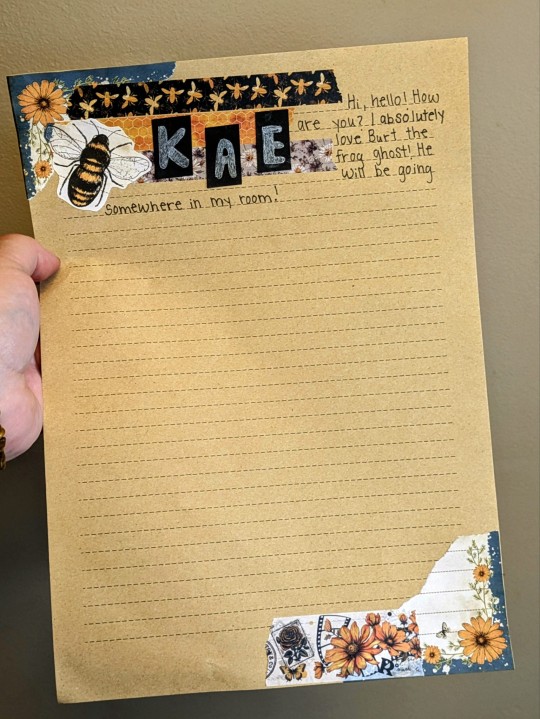 KAE
Hi, hello! How
are you? I absolutely
love Burt the
frog ghost! He
will be going
somewhere in my room!
R